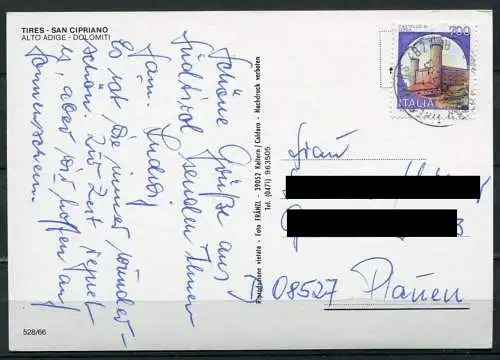 TIRES - SAN CIPRIANO
ALTO ADIGE - DOLOMITI
Schöne Grüße aus
Südtirol senden Ihnen
Fam.
Es ist wie immer wunder-
schön. Zur Zeit regnet
es, aber wir hoffen auf
Sonnenschein.
528/66
Riproduzione vietata - Foto FRÄNZL - 39052 Kaltern/Caldaro - Nachdruck verboten
Tel. (0471) 963505
700
ITALIA
Frau
08527 Plauen